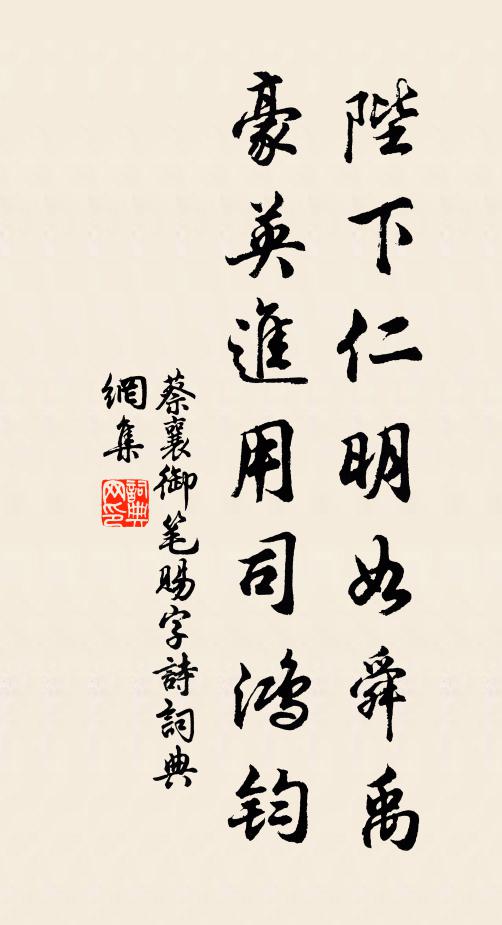 陛下仁明如舜禹
豪英進用司鴻鈞
蔡襄御笔賜字詩詞典
網集
詞典
网印